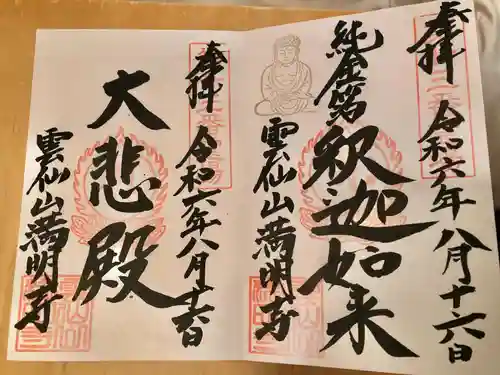 奉拝
令和六年八月十六日
純金箔
釈迦如来
雲仙山満明寺
奉拝
令和六年八月十六日
大悲殿
雲仙山満明寺